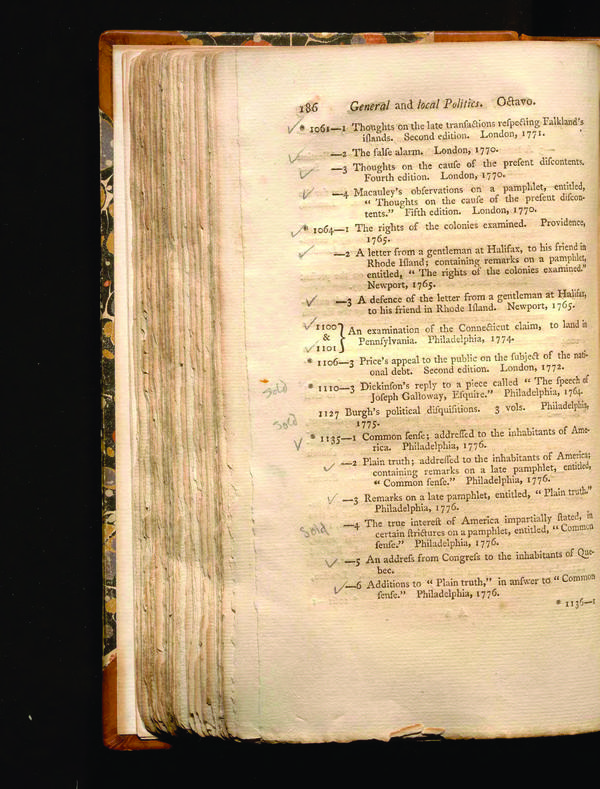 186 General and local Politics. Octavo.
* 1061—1 Thoughts on the late transactions respecting Falkland's
iſlands. Second edition. London, 1771.
—2 The falſe alarm. London, 1770.
—3 Thoughts on the cauſe of the preſent diſcontents.
Fourth edition. London, 1770.
—4 Macauley's obſervations on a pamphlet, entitled,
“ Thoughts on the cauſe of the preſent diſcon-
tents.” Fifth edition. London, 1770.
* 1064—1 The rights of the colonies examined. Providence,
1765.
—2 A letter from a gentleman at Halifax, to his friend in
Rhode Iſland; containing remarks on a pamphlet,
entitled, “ The rights of the colonies examined.”
Newport, 1765.
—3 A defence of the letter from a gentleman at Halifax,
to his friend in Rhode Iſland. Newport, 1765.
1100
& An examination of the Connecticut claim, to land in
Pennſylvania. Philadelphia, 1774.
1101
* 1106—3 Price's appeal to the public on the ſubject of the nati-
onal debt. Second edition. London, 1772.
Sold * 1110—3 Dickinſon's reply to a piece called “ The ſpeech of
Joſeph Galloway, Eſquire.” Philadelphia, 1764.
Sold 1127 Burgh's political diſquiſitions. 3 vols. Philadelphia,
1775.
* 1135—1 Common ſenſe; addreſſed to the inhabitants of Ame-
rica. Philadelphia, 1776.
—2 Plain truth; addreſſed to the inhabitants of America;
containing remarks on a late pamphlet, entitled,
“ Common ſenſe.” Philadelphia, 1776.
—3 Remarks on a late pamphlet, entitled, “ Plain truth.”
Philadelphia, 1776.
Sold —4 The true intereſt of America impartially ſtated, in
certain ſtrictures on a pamphlet, entitled, “ Common
ſenſe.” Philadelphia, 1776.
—5 An addreſs from Congreſs to the inhabitants of Que-
bec.
—6 Additions to “ Plain truth,” in anſwer to “ Common
ſenſe.” Philadelphia, 1776.
* 1136—1